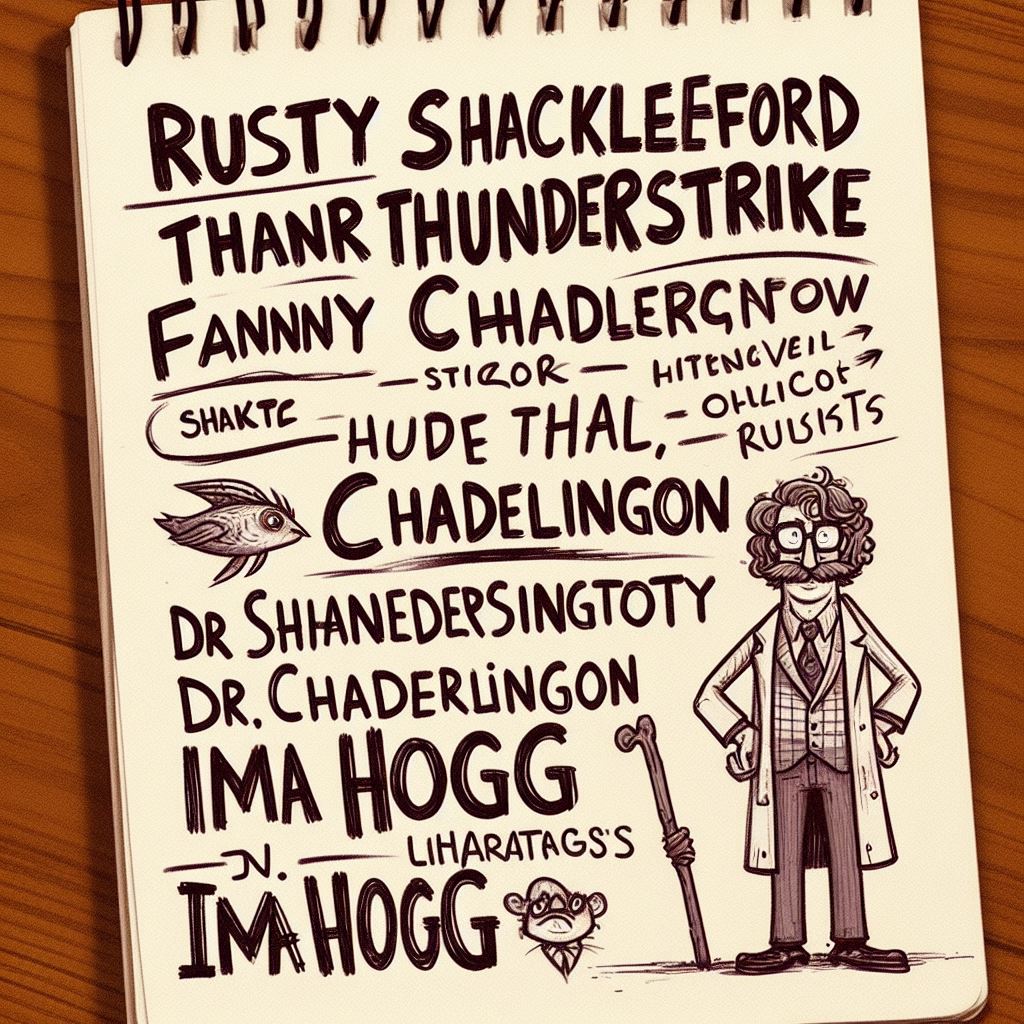 RUSTY SHACKLEEFORD
THANR THUNDERSTRIKE
FANNNY CHHADLERGNFOW
STIZOR
HITENGVEIL
SHAKTC
HUDE THAL,
OHLICOF
RUUSISTS
CHADELINGON
DR SHHANEDERSINGTOTY
DR. CHADERLINGON
IMA HOGG
JV.
LIHARATAGS'S
IMA HOGG